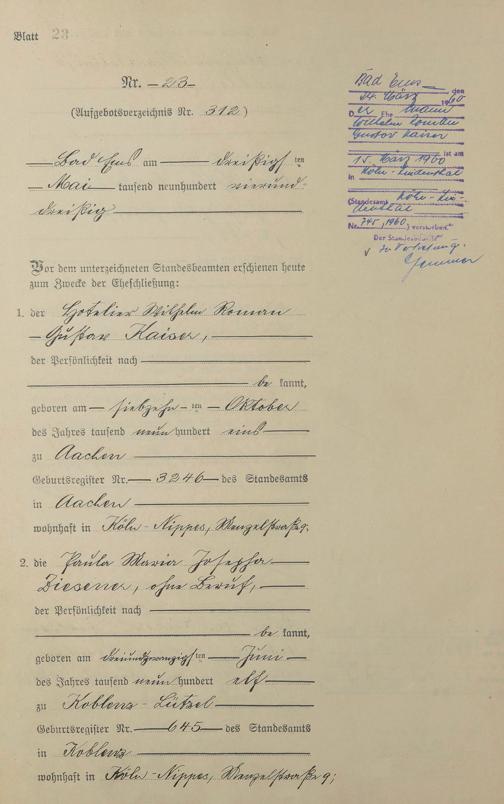 Blatt 23
Nr. 23
(Aufgebotsverzeichnis Nr. 312)
Bad Ems am dreißigsten
Mai tausend neunhundert vierund-
dreißig
Vor dem unterzeichneten Standesbeamten erschienen heute
zum Zwecke der Eheschließung:
1. der Hotelier Wilhelm Roman
Gustav Kaiser,
der Persönlichkeit nach
be kannt,
geboren am siebzehn ten Oktober
des Jahres tausend neun hundert eins
zu Aachen
Geburtsregister Nr. 3246 des Standesamts
in Aachen
wohnhaft in Köln-Nippes, Wenzelstraße 9.
2. die Paula Maria Josepha
Ziesener, ohne Beruf,
der Persönlichkeit nach
be kannt,
geboren am dreiundzwanzigsten Juni
des Jahres tausend neun hundert elf
zu Koblenz-Lützel
Geburtsregister Nr. 645 des Standesamts
in Koblenz
wohnhaft in Köln-Nippes, Wenzelstraße 9;
Bad Ems, den
24. März 1960
Der Ehemann
Wilhelm Roman
Gustav Kaiser
ist am
15. März 1960
in Köln-Lindenthal
(Standesamt Köln-Lin-
denthal
Nr. 745/1960) verstorben
Der Standesbeamte
In Vertretung.